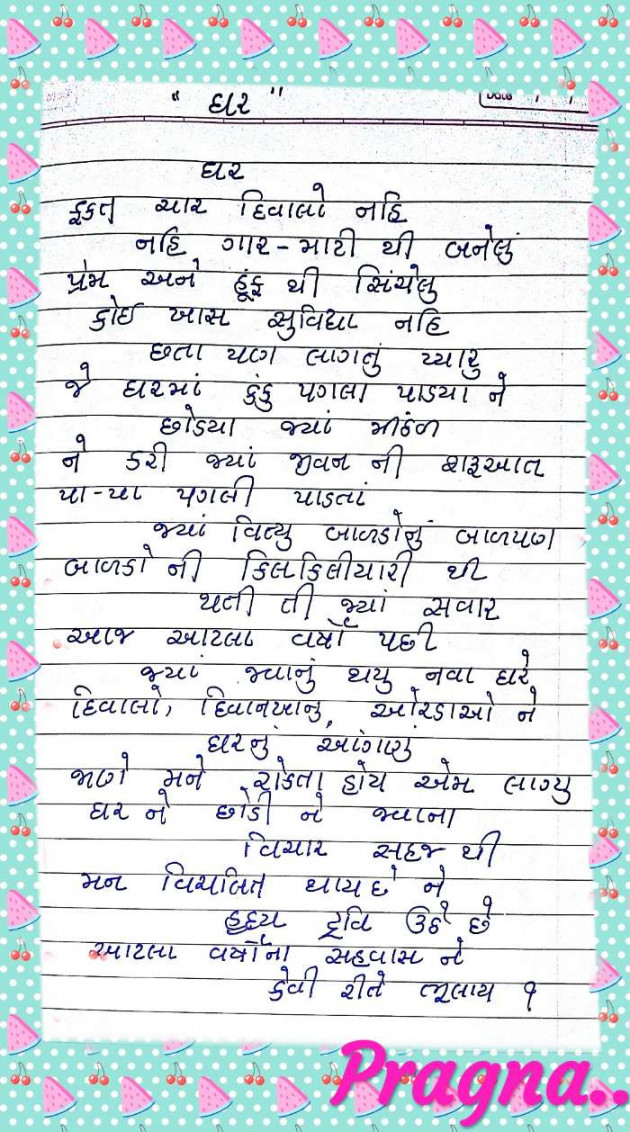 " ઘર "
Date / /
ઘર
ફક્ત ચાર દિવાલો નહિ
નહિ ગાર-માટી થી બનેલું
પ્રેમ અને હૂંફ થી સિંચેલુ
કોઈ ખાસ સુવિધા નહિ
છતા પણ લાગતું પ્યારુ
જે ઘરમાં કુંકુ પગલા પાડયા ને
છોડયા જ્યાં મીંઢળ
ને કરી જ્યાં જીવન ની શરૂઆત
પા-પા પગલી પાડતાં
જ્યાં વિત્યુ બાળકોનું બાળપણ
બાળકો ની કિલકિલીયારી થી
થતી તી જ્યાં સવાર
આજ આટલા વર્ષો પછી
જ્યાં જવાનું થયુ નવા ઘરે
દિવાલો, દિવાનખાનુ, ઓરડાઓ ને
ઘરનું આંગણું
જાણે મને રોકતા હોય એમ લાગ્યુ
ઘર ને છોડી ને જવાના
વિચાર સહજ થી
મન વિચલિત થાય છે ને
હૃદય દ્રવિ ઉઠે છે
આટલા વર્ષોના સહવાસ ને
કેવી રીતે ભૂલાય ?
Pragna..